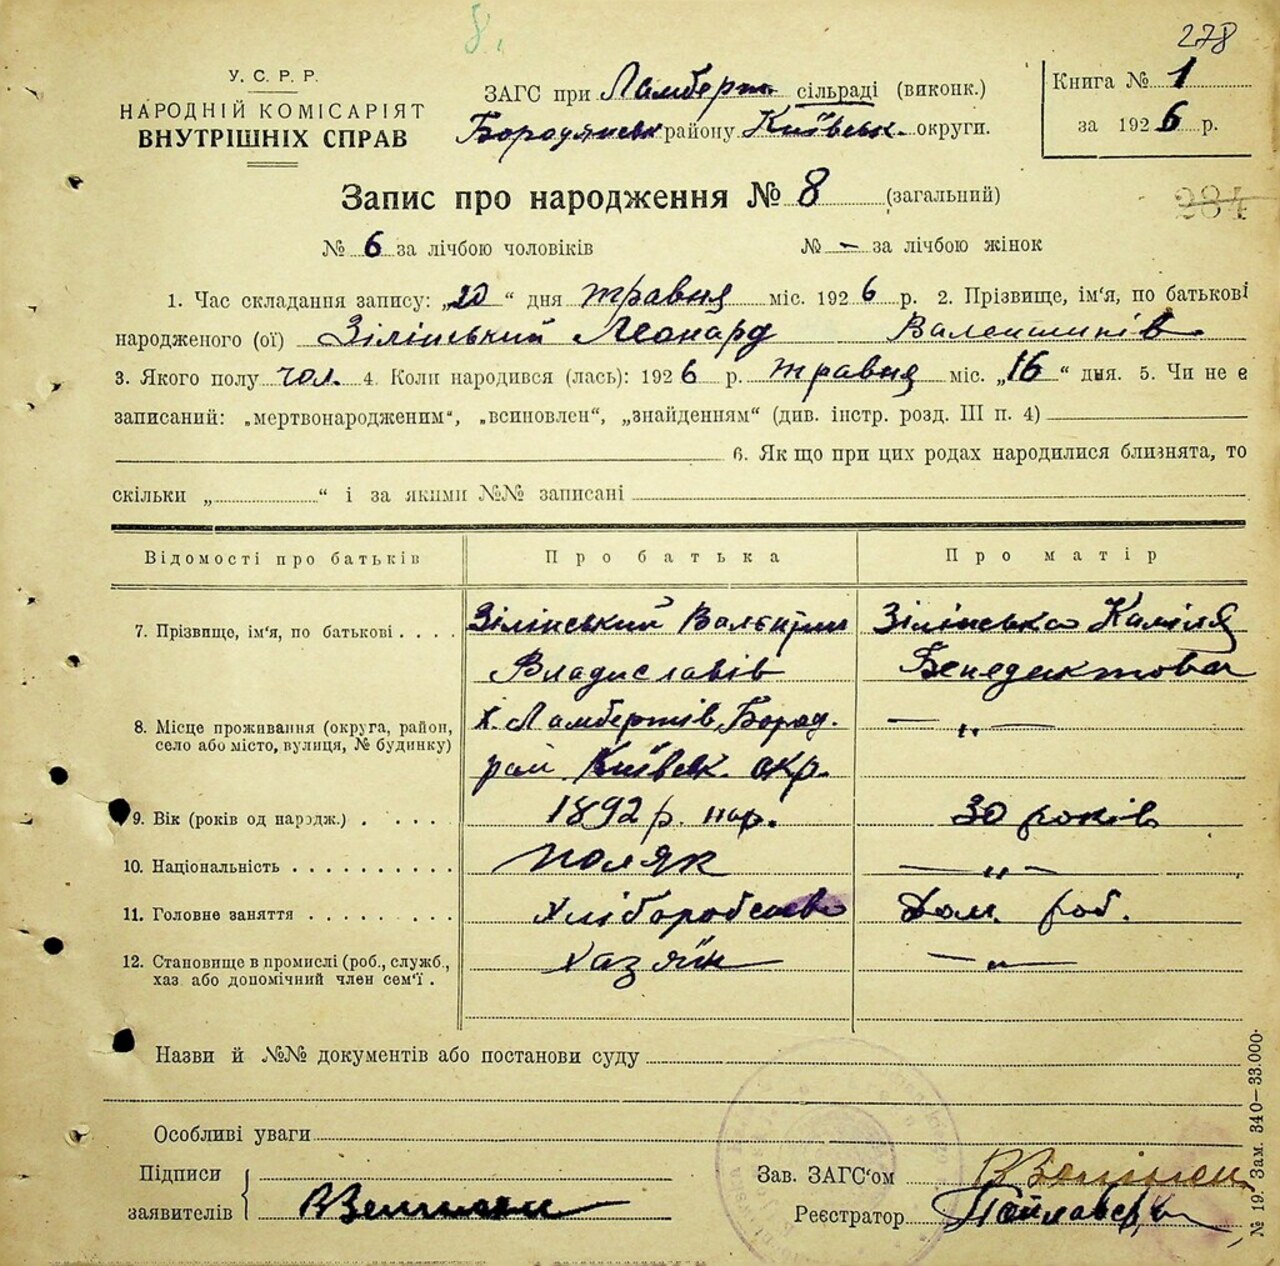 8.
278
У. С. Р. Р.
НАРОДНІЙ КОМІСАРІЯТ
ВНУТРІШНІХ СПРАВ
ЗАГС при Ламберт. сільраді (виконк.)
Бородянськ району Київськ. округи.
Книга № 1
за 1926 р.
Запис про народження № 8 (загальний)
284
№ 6 за лічбою чоловіків № — за лічбою жінок
1. Час складання запису: „20“ дня травня міс. 1926 р. 2. Прізвище, ім'я, по батькові
народженого (ої) Зілінський Леонард Валентинів
3. Якого полу чол. 4. Коли народився (лась): 1926 р. травня міс. „16“ дня. 5. Чи не є
записаний: „мертвонародженим“, „всиновлен“, „знайденням“ (див. інстр. розд. III п. 4)
6. Як що при цих родах народилися близнята, то
скільки „ “ і за якими №№ записані
Відомості про батьків Про батька Про матір
7. Прізвище, ім'я, по батькові . . . . Зілінський Валєнтин Зілінська Каміля
Владиславів Бенедиктова
8. Місце проживання (округа, район, х. Ламбертів, Бород. — „ —
село або місто, вулиця, № будинку) рай. Київськ. окр.
9. Вік (років од народж.) . . . . . 1892 р. нар. 30 років
10. Національність . . . . . . . . . . поляк — „ —
11. Головне заняття . . . . . . . . . Хліборобство Дом. роб.
12. Становище в промислі (роб., служб., хазяїн — „ —
хаз або допомічний член сем'ї .
Назви й №№ документів або постанови суду
Особливі уваги
Підписи
заявителів
Зав. ЗАГС'ом
Реєстратор
№ 19. Зам. 340—33.000.